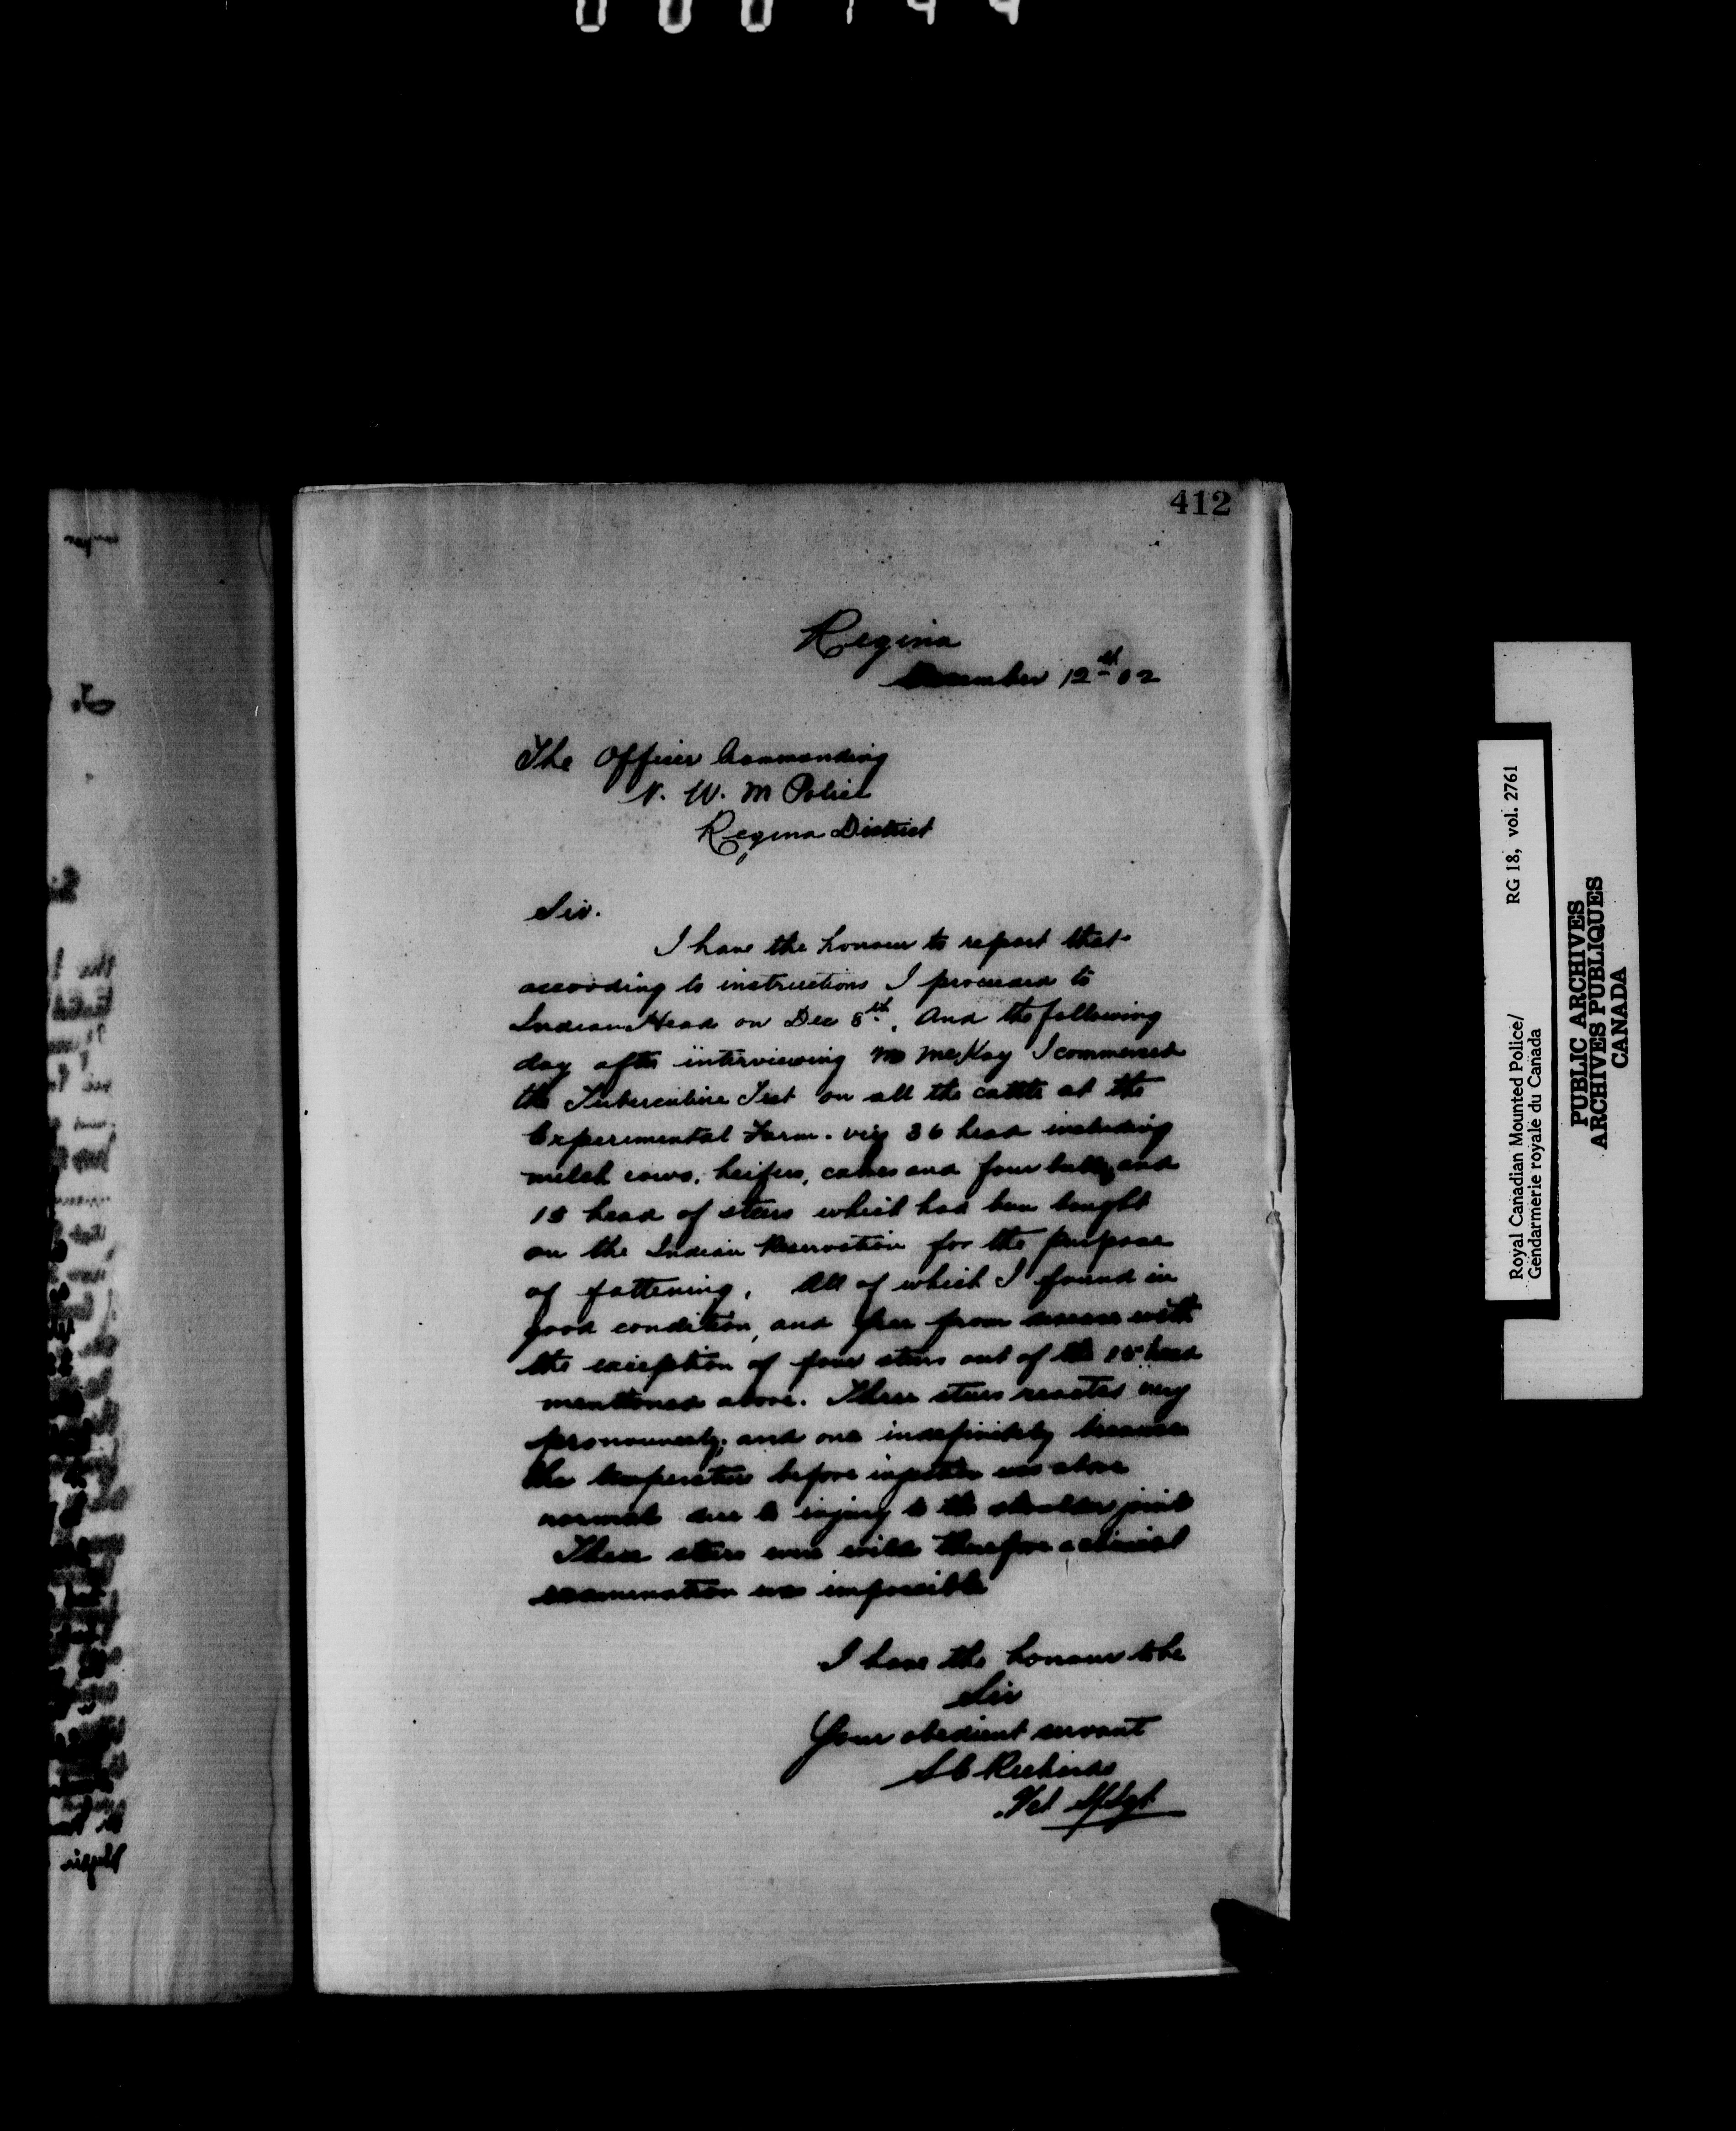 412
Regina
December 12th 02
The Officer Commanding
N. W. M Police
Regina District
Sir.
I have the honour to report that
according to instructions I proceeded to
Indian Head on Dec 8th. And the following
day after interviewing Mr McKay I commenced
the Tuberculine Test on all the cattle at the
Experimental Farm. viz 36 head including
milch cows, heifers, calves and four bulls, and
15 head of steers which had been bought
on the Indian Reservation for the purpose
of fattening. All of which I found in
good condition, and free from disease with
the exception of four steers out of the 15 head
mentioned above. Three steers reacted very
pronouncedly, and one indefinitely because
the temperature before injection was above
normal due to injury to the shoulder joint
These steers were wild therefore a clinical
examination was impossible
I have the honour to be
Sir
Your obedient servant
Vet S/Sgt
Royal Canadian Mounted Police/
Gendarmerie royale du Canada
RG 18, vol. 2761
PUBLIC ARCHIVES
ARCHIVES PUBLIQUES
CANADA